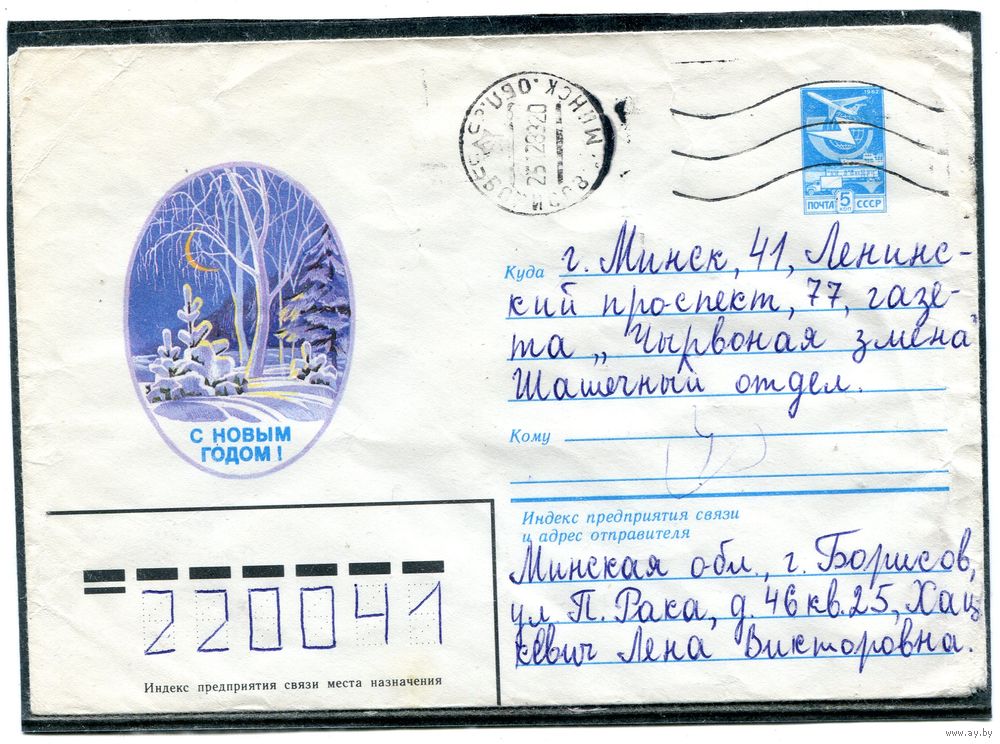 1982
ПОЧТА 5 КОП СССР
МИНСК. ОБЛ.
25 12 83 20
Куда г. Минск, 41, Ленинс-
кий проспект, 77, газе-
та „Чырвоная змена"
Шашечный отдел.
Кому
С НОВЫМ
ГОДОМ!
Индекс предприятия связи
и адрес отправителя
Минская обл., г. Борисов,
ул. П. Рака, д. 46 кв. 25, Хац
кевич Лена Викторовна.
220041
Индекс предприятия связи места назначения
www.ay.by